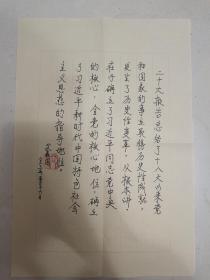 二十大报告总结了十八大以来党
和国家的事业取得历史性成就、
发生了历史性变革，从根本讲
在于确立了习近平同志党中央
的核心、全党的核心地位，确立
了习近平新时代中国特色社会
主义思想的指导地位。